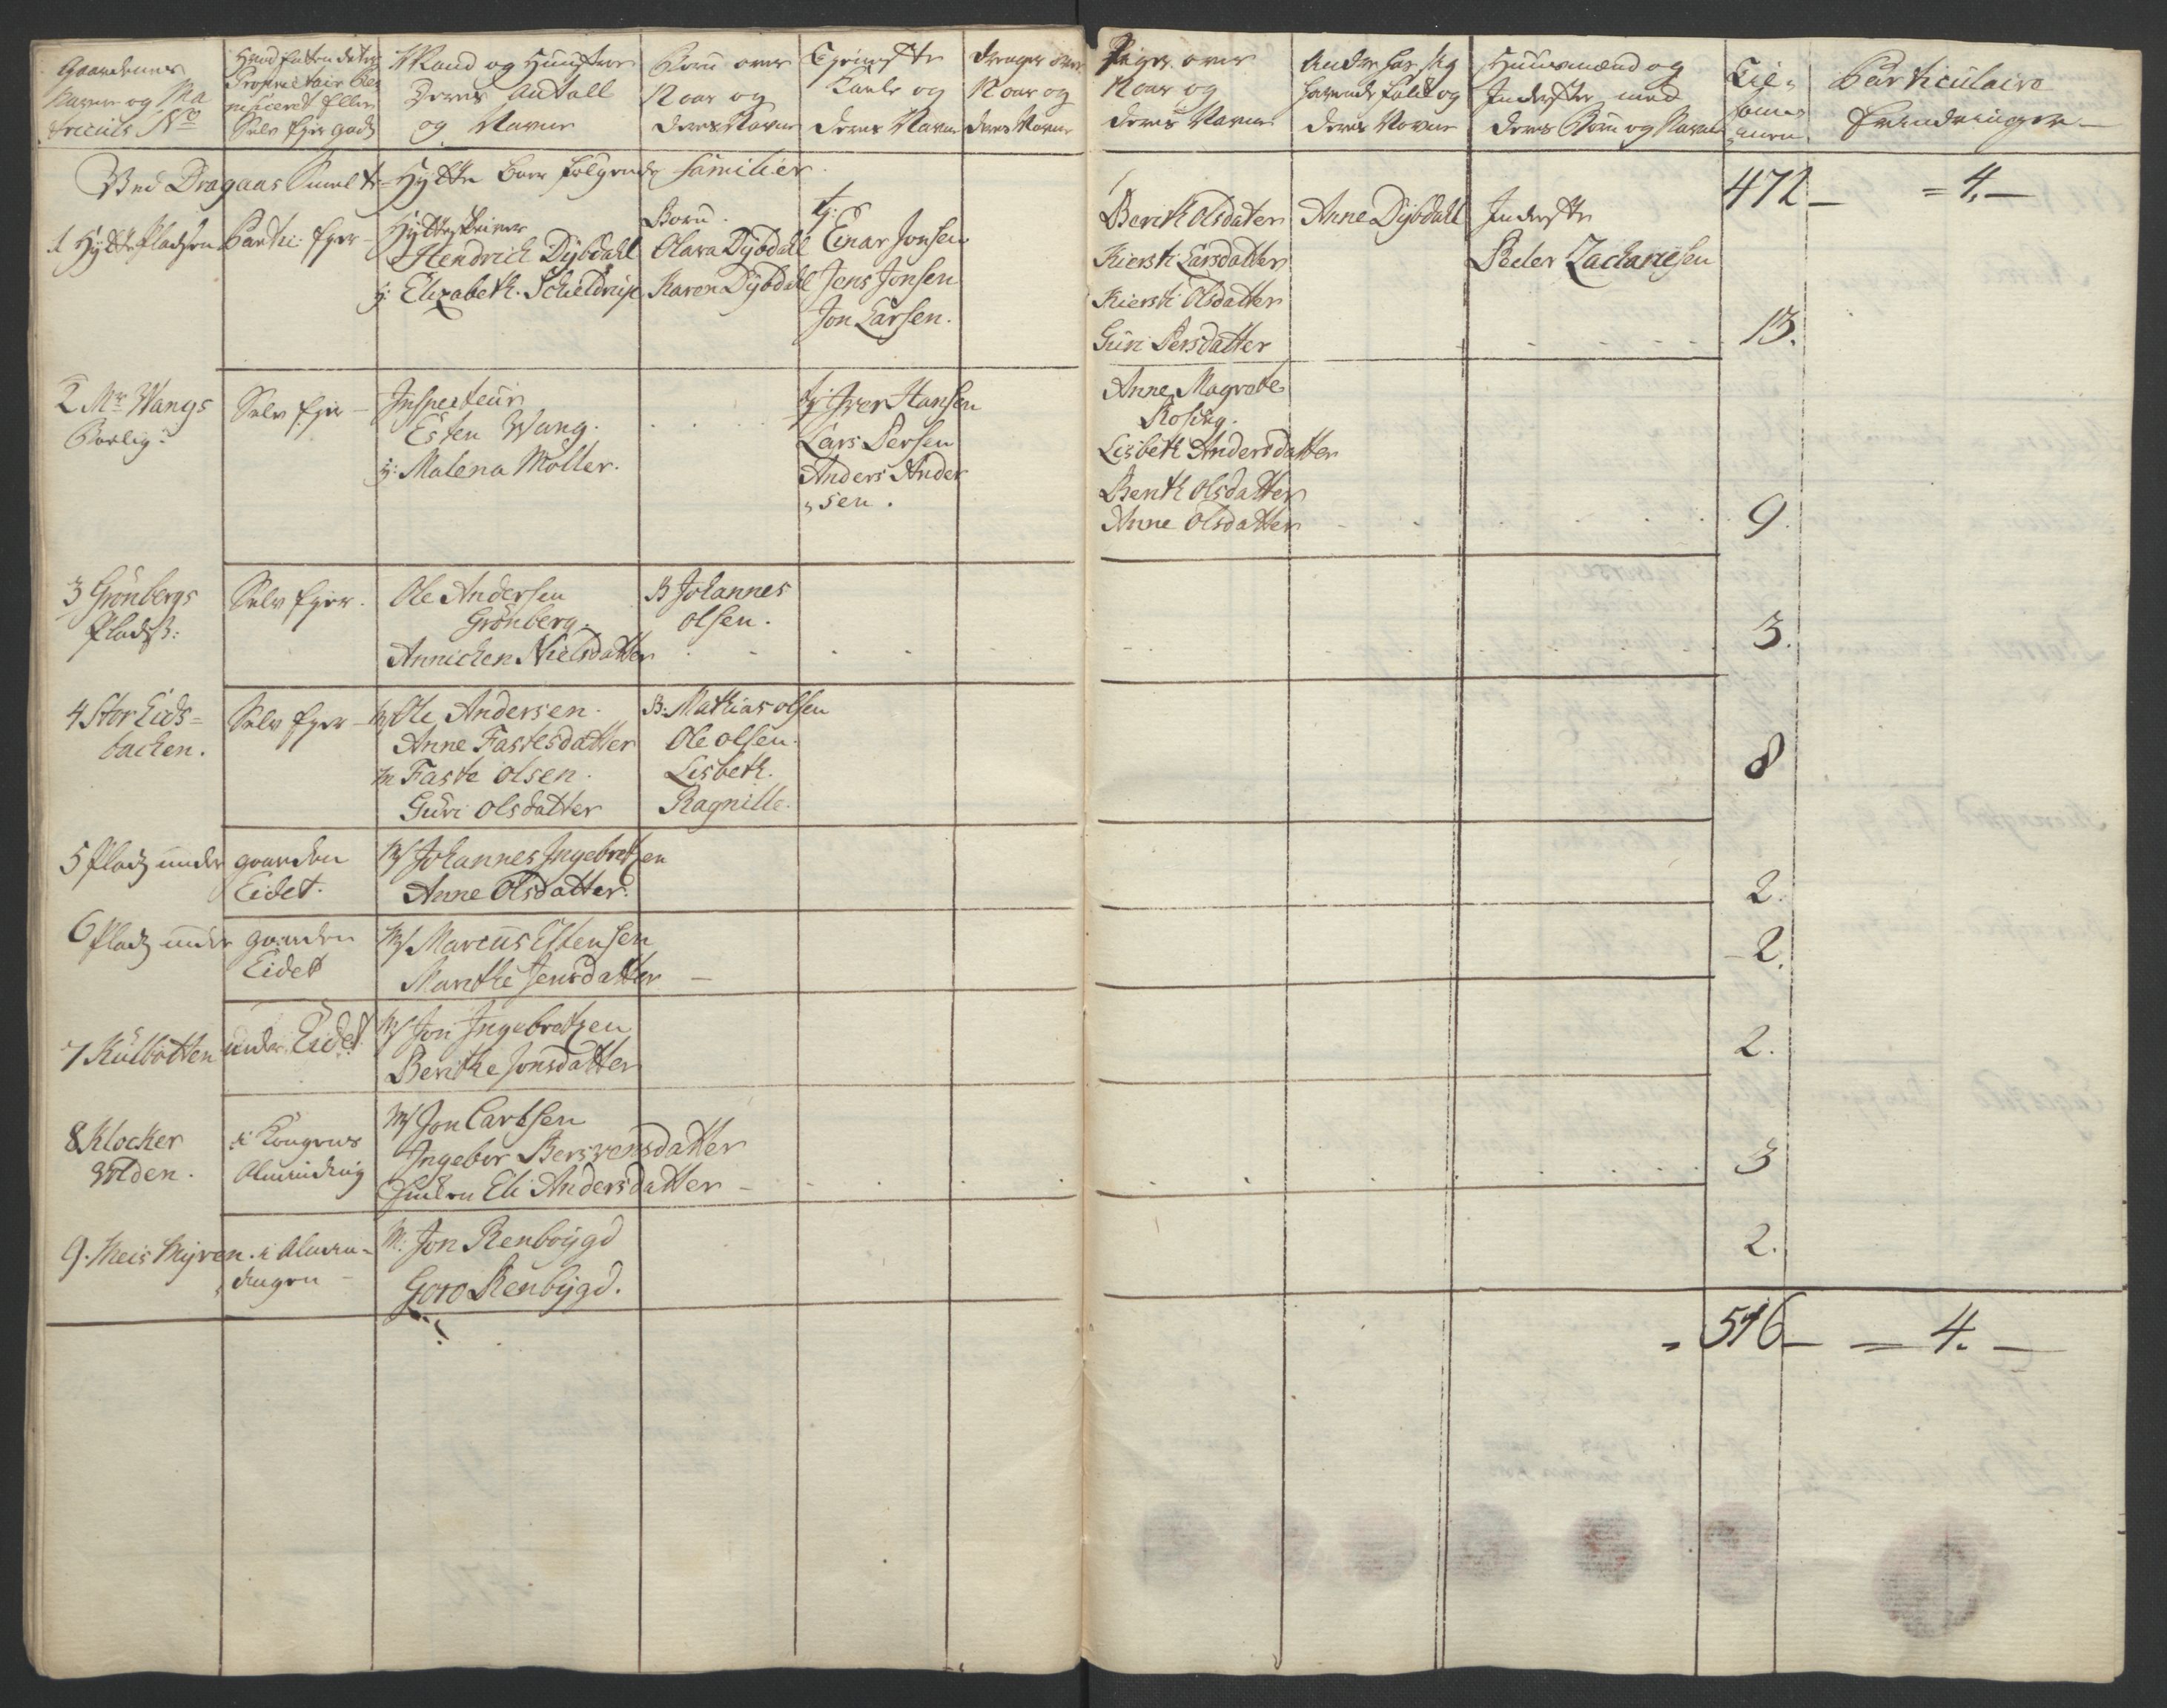 Gaardenes
Navne og Ma
triculs No
Selv Ejer gods
Mand og Hustrue
Deres Antall
og Navne
Børn over
12 aar og
deres Navne
Tieniste
Karle og
deres Navne
Drenge over
12 aar og
deres Navne
Piger over
12 aar og
deres Navne
deres Navne
Huusmænd og
Inderster med
deres Børn og Navne
Til¬
sam̄en
Particulaire
Erindringer
Ved Dragaas Smelte-Hytte boer følgende familier
472 - = 4. -
1 Hyttepladsen
Parti: Ejer
Hytteskriver
Hendrich Dybdahl
H: Elizabeth Schieldrup
Børn.
Olava Dybdahl
Karen Dybdahl
Tj:
Einar Jonsen
Jens Jonsen
Jon Larsen.
Berith Olsdater
Kiersti Larsdatter
Kiersti Olsdatter
Guri Persdatter
Anne Dybdall
Inderste
Peder Zachariesen
13.
2 Mr Wangs
Boelig:
Selv Ejer
Inspecteur
Esten Wang.
H: Malena Möller.
Tj: Iver Hansen
Lars Persen
Anders Ander
sen.
Anne Magrete
Rosing.
Lisbeth Andersdatter
Berith Olsdatter
Anne Olsdatter
9.
3 Grönbergs
Plads:
Selv Ejer.
Ole Andersen
Grönberg.
Annichen Nielsdatter
B Johannes
Olsen.
3.
4 Stor Eids=
bachen.
Selv Ejer
M/ Ole Andersen.
Anne Fastesdatter
M Faste Olsen.
Guri Olsdatter
B: Mathias Olsen
Ole Olsen.
Lisbeth.
Ragnille.
8
5 Plads under gaarden
Eidet.
M/ Johannes Ingebretzen
Anne Olsdatter.
2.
6 Plads under gaarden
Eidet
M/ Marcus Estensen
Marithe Jensdatter
2.
7 Kulbotten under Eidet.
M/ Jon Ingebretzen
Berithe Jonsdatter
2.
8 Klocker
Volden.
i Kongens
Alminding
M/ Jon Carlsen
Ingebor Bersvensdatter
Enken Eli Andersdatter
3
9. Theis Myren. i Almin-
dingen
M: Jon Renbøygd
Goro Renbygd.
2.
= 516 - = 4. -